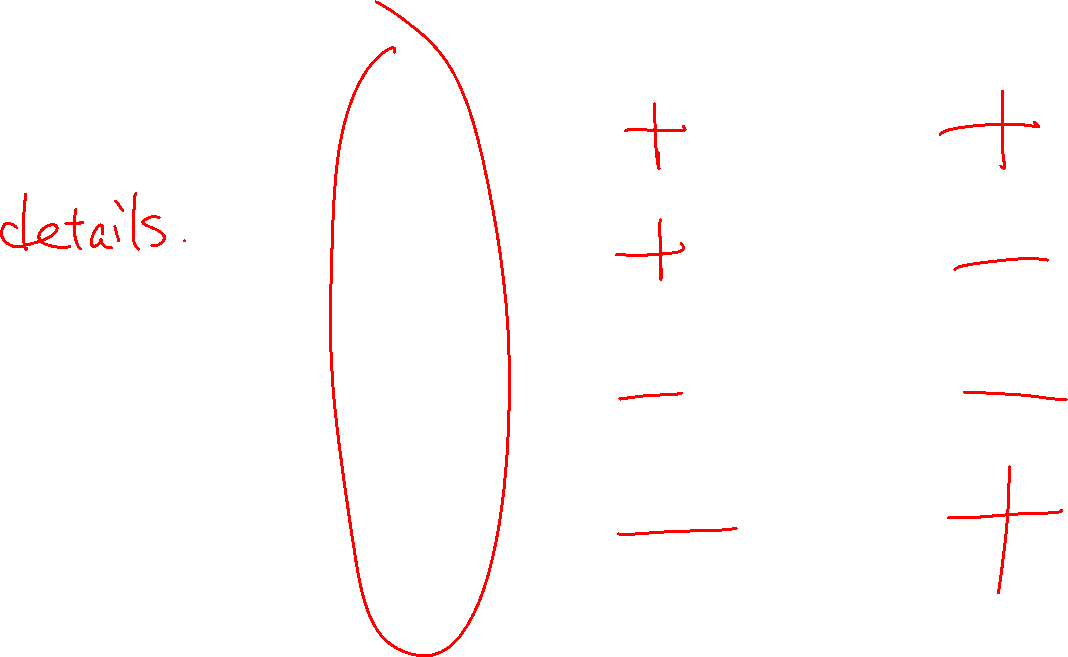 + +
details.
+ −
− −
− +